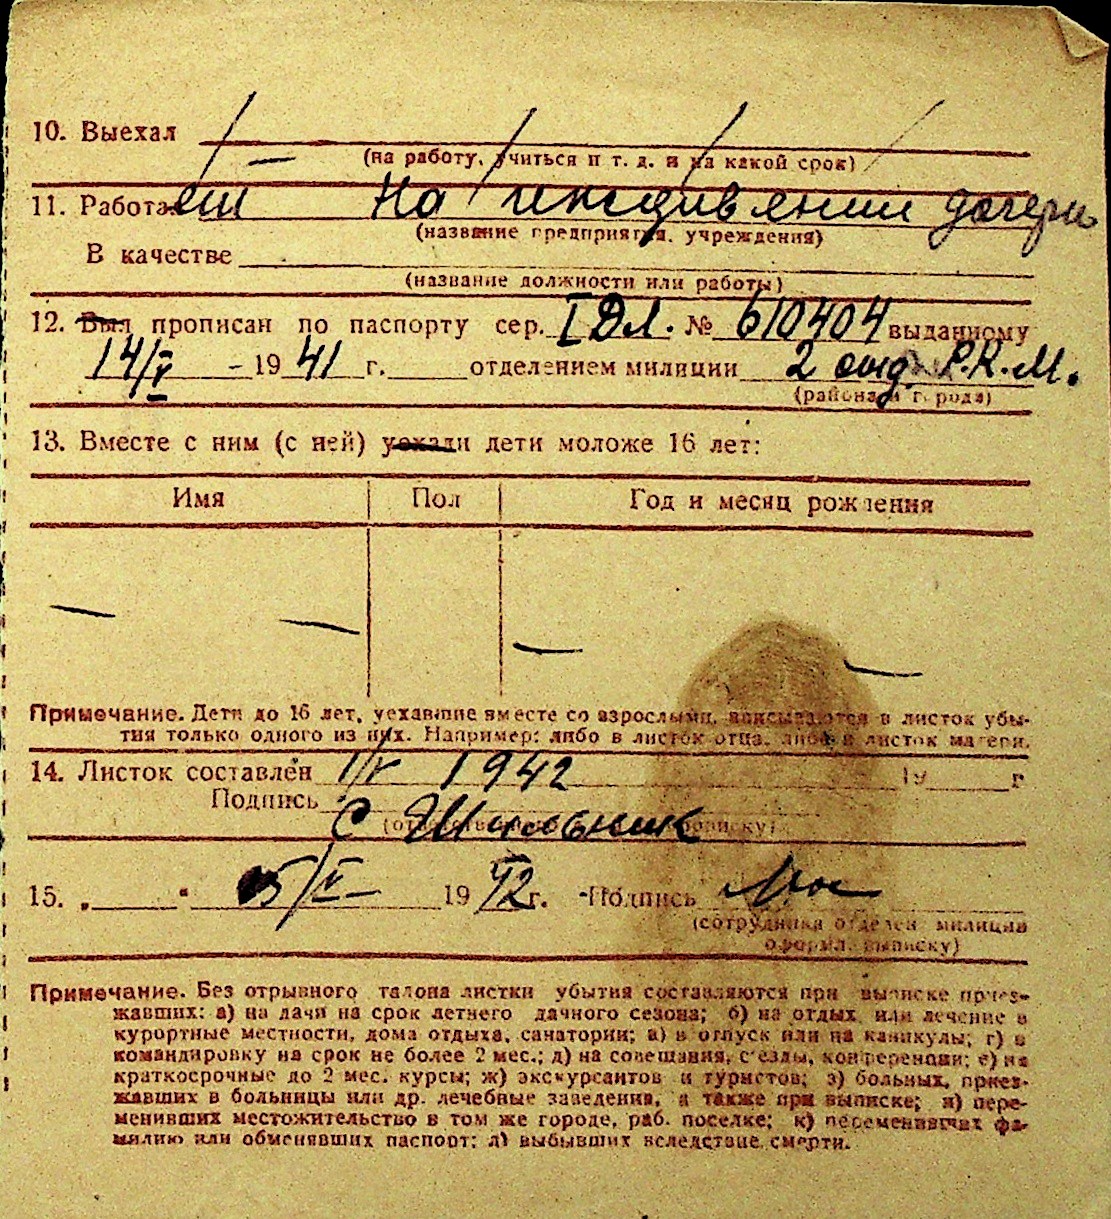 10. Выехал
(на работу, учиться и т. д. и на какой срок)
11. Работал На иждивении дочери
(название предприятия, учреждения)
В качестве
(название должности или работы)
12. Был прописан по паспорту сер. I ДЛ. № 610404 выданному
14/V - 1941 г. отделением милиции 2 отд. Р.К.М.
(района и города)
13. Вместе с ним (с ней) уехали дети моложе 16 лет:
Имя Пол Год и месяц рождения
Примечание. Дети до 16 лет, уехавшие вместе со взрослыми, вписываются в листок убы-
тия только одного из них. Например: либо в листок отца, либо в листок матери.
14. Листок составлен 1/V 1942 19 г
Подпись
15. „ " 5/V 1942 г. Подпись
(сотрудника отделен. милиции
оформл. выписку)
Примечание. Без отрывного талона листки убытия составляются при выписке приез-
жавших: а) на дачи на срок летнего дачного сезона; б) на отдых или лечение в
курортные местности, дома отдыха, санатории; в) в отпуск или на каникулы; г) в
командировку на срок не более 2 мес.; д) на совещания, с'езды, конференции; е) на
краткосрочные до 2 мес. курсы; ж) экскурсантов и туристов; з) больных, приез-
жавших в больницы или др. лечебные заведения, а также при выписке; и) пере-
менивших местожительство в том же городе, раб. поселке; к) переменивших фа-
милию или обменявших паспорт; л) выбывших вследствие смерти.